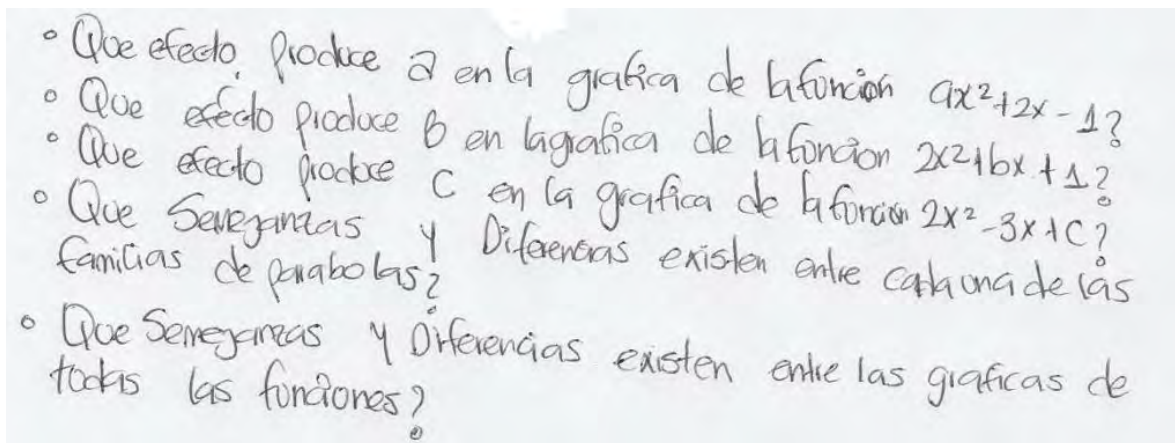 ° Que efecto produce a en la grafica de la función ax²+2x-1?
° Que efecto produce B en la grafica de la funcion 2x²+bx+1?
° Que efecto produce C en la grafica de la funcion 2x²-3x+C?
° Que Semeganzas y Diferencias existen entre cada una de las
familias de parabolas?
° Que Semeganzas y Diferencias existen entre las graficas de
todas las funciones?